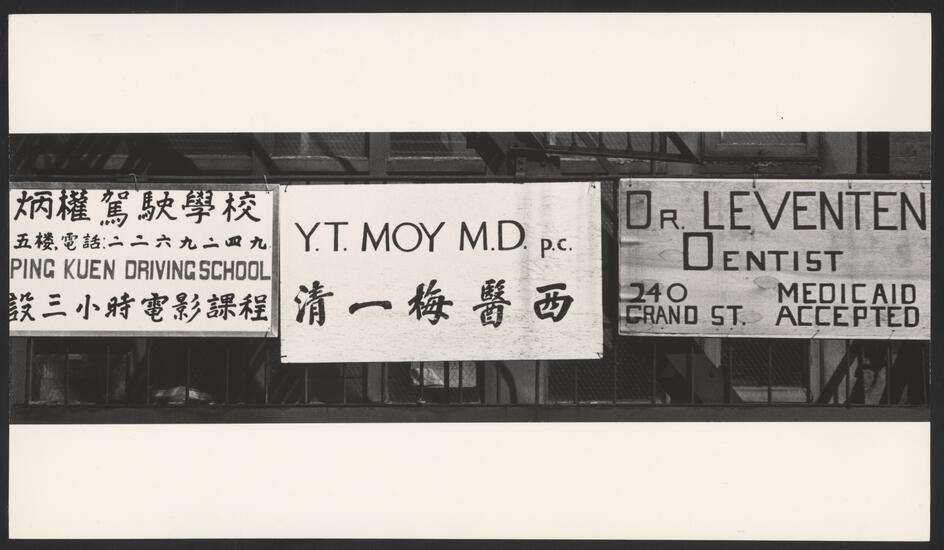 炳權駕駛學校
五楼.電話:二二六九二四九
PING KUEN DRIVING SCHOOL
設三小時電影課程
Y.T. MOY M.D. p.c.
清一梅醫西
DR. LEVENTEN
DENTIST
240 MEDICAID
GRAND ST. ACCEPTED